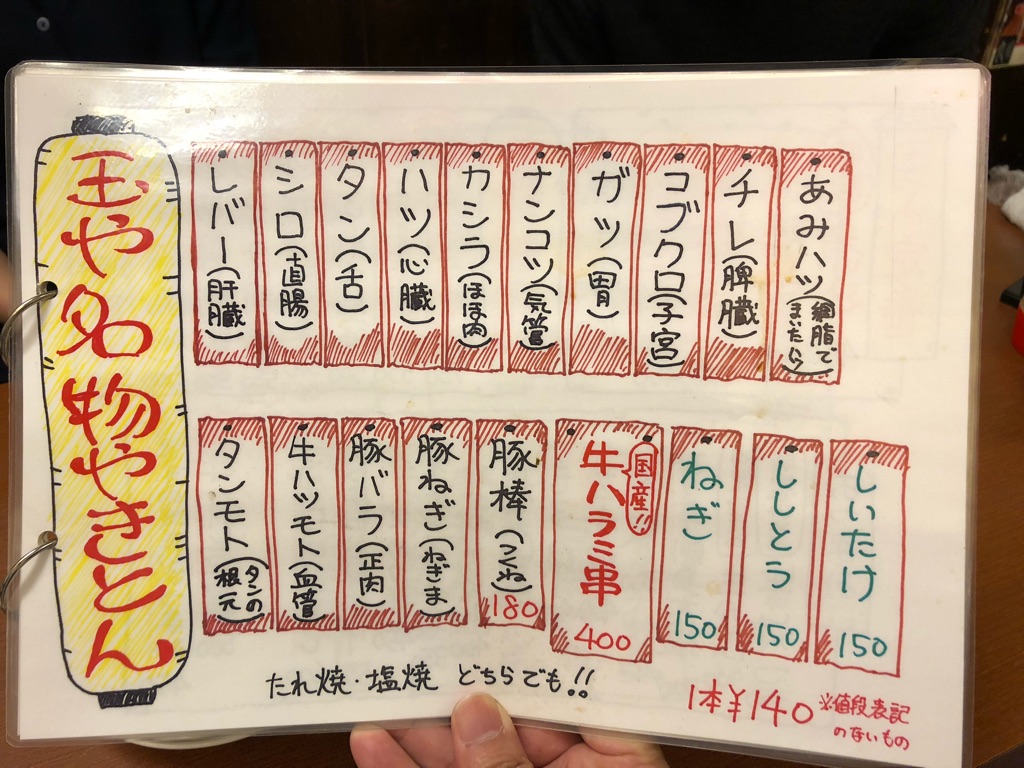 玉や名物やきとん
レバー(肝臓)
シロ(直腸)
タン(舌)
ハツ(心臓)
カシラ(ほほ肉)
ナンコツ(気管)
ガツ(胃)
コブクロ(子宮)
チレ(脾臓)
あみハツ(網脂で
まいたハツ)
タンモト(タンの
根元)
牛ハツモト(血管)
豚バラ(正肉)
豚ねぎ(ねぎま)
豚棒(つくね)
180
国産!!
牛ハラミ串
400
ねぎ
150
ししとう
150
しいたけ
150
たれ焼・塩焼 どちらでも!!
1本¥140 ※値段表記
のないもの